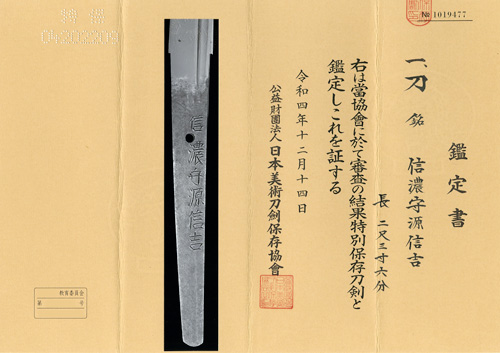 № 1019477
鑑定書
一、刀 銘 信濃守源信吉
長 二尺三寸六分
右は當協會に於て審査の結果特別保存刀剣と
鑑定しこれを証する
令和四年十二月十四日
公益財團法人 日本美術刀剣保存協會
信濃守源信吉
教育委員会
第 号